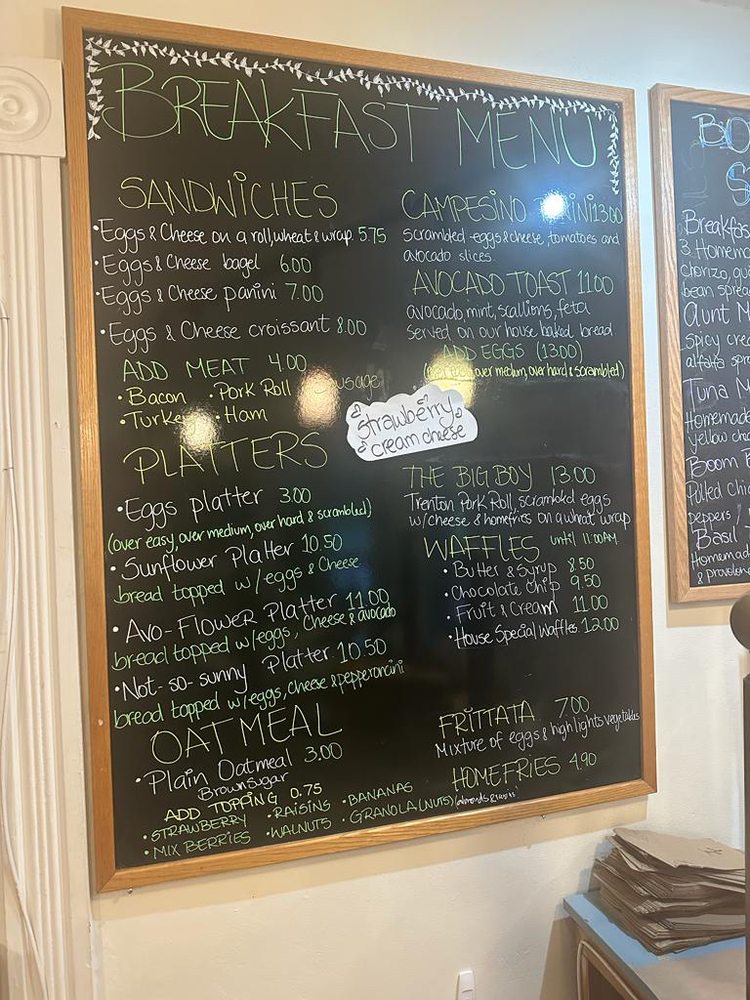 BREAKFAST MENU
SANDWICHES
• Eggs & Cheese on a roll, wheat & wrap 5.75
• Eggs & Cheese bagel 6.00
• Eggs & Cheese panini 7.00
• Eggs & Cheese croissant 8.00
ADD MEAT 4.00
• Bacon • Pork Roll Sausage
• Turkey • Ham
PLATTERS
• Eggs platter 3.00
(over easy, over medium, over hard & scrambled)
• Sunflower Platter 10.50
bread topped w/eggs & Cheese
• Avo-Flower Platter 11.00
bread topped w/eggs, Cheese & avocado
• Not-so-sunny Platter 10.50
bread topped w/eggs, cheese & pepperoncini
OATMEAL
• Plain Oatmeal 3.00
Brown Sugar
ADD TOPPING 0.75
• STRAWBERRY • RAISINS • BANANAS
• MIX BERRIES • WALNUTS • GRANOLA (NUTS)
CAMPESINO 13.00
scrambled eggs & cheese, tomatoes and
avocado slices
AVOCADO TOAST 11.00
avocado, mint, scallions, feta
served on our house baked bread
ADD EGGS (13.00)
over medium, over hard & scrambled)
strawberry
cream cheese
THE BIG BOY 13.00
Trenton Pork Roll, scrambled eggs
w/cheese & homefries on a wheat wrap
WAFFLES until 11:00AM
• Butter & Syrup 8.50
• Chocolate Chip 9.50
• Fruit & Cream 11.00
• House Special Waffles 12.00
FRITTATA 7.00
Mixture of eggs & highlights vegetables
HOMEFRIES 4.90
Breakfas
3 Homem
chorizo,
bean sprea
Aunt M
Spicy crea
alfalfa spr
Tuna M
Homemade
yellow che
Boom B
Pulled Chic
peppers,
Basil
Homemad
& provolone